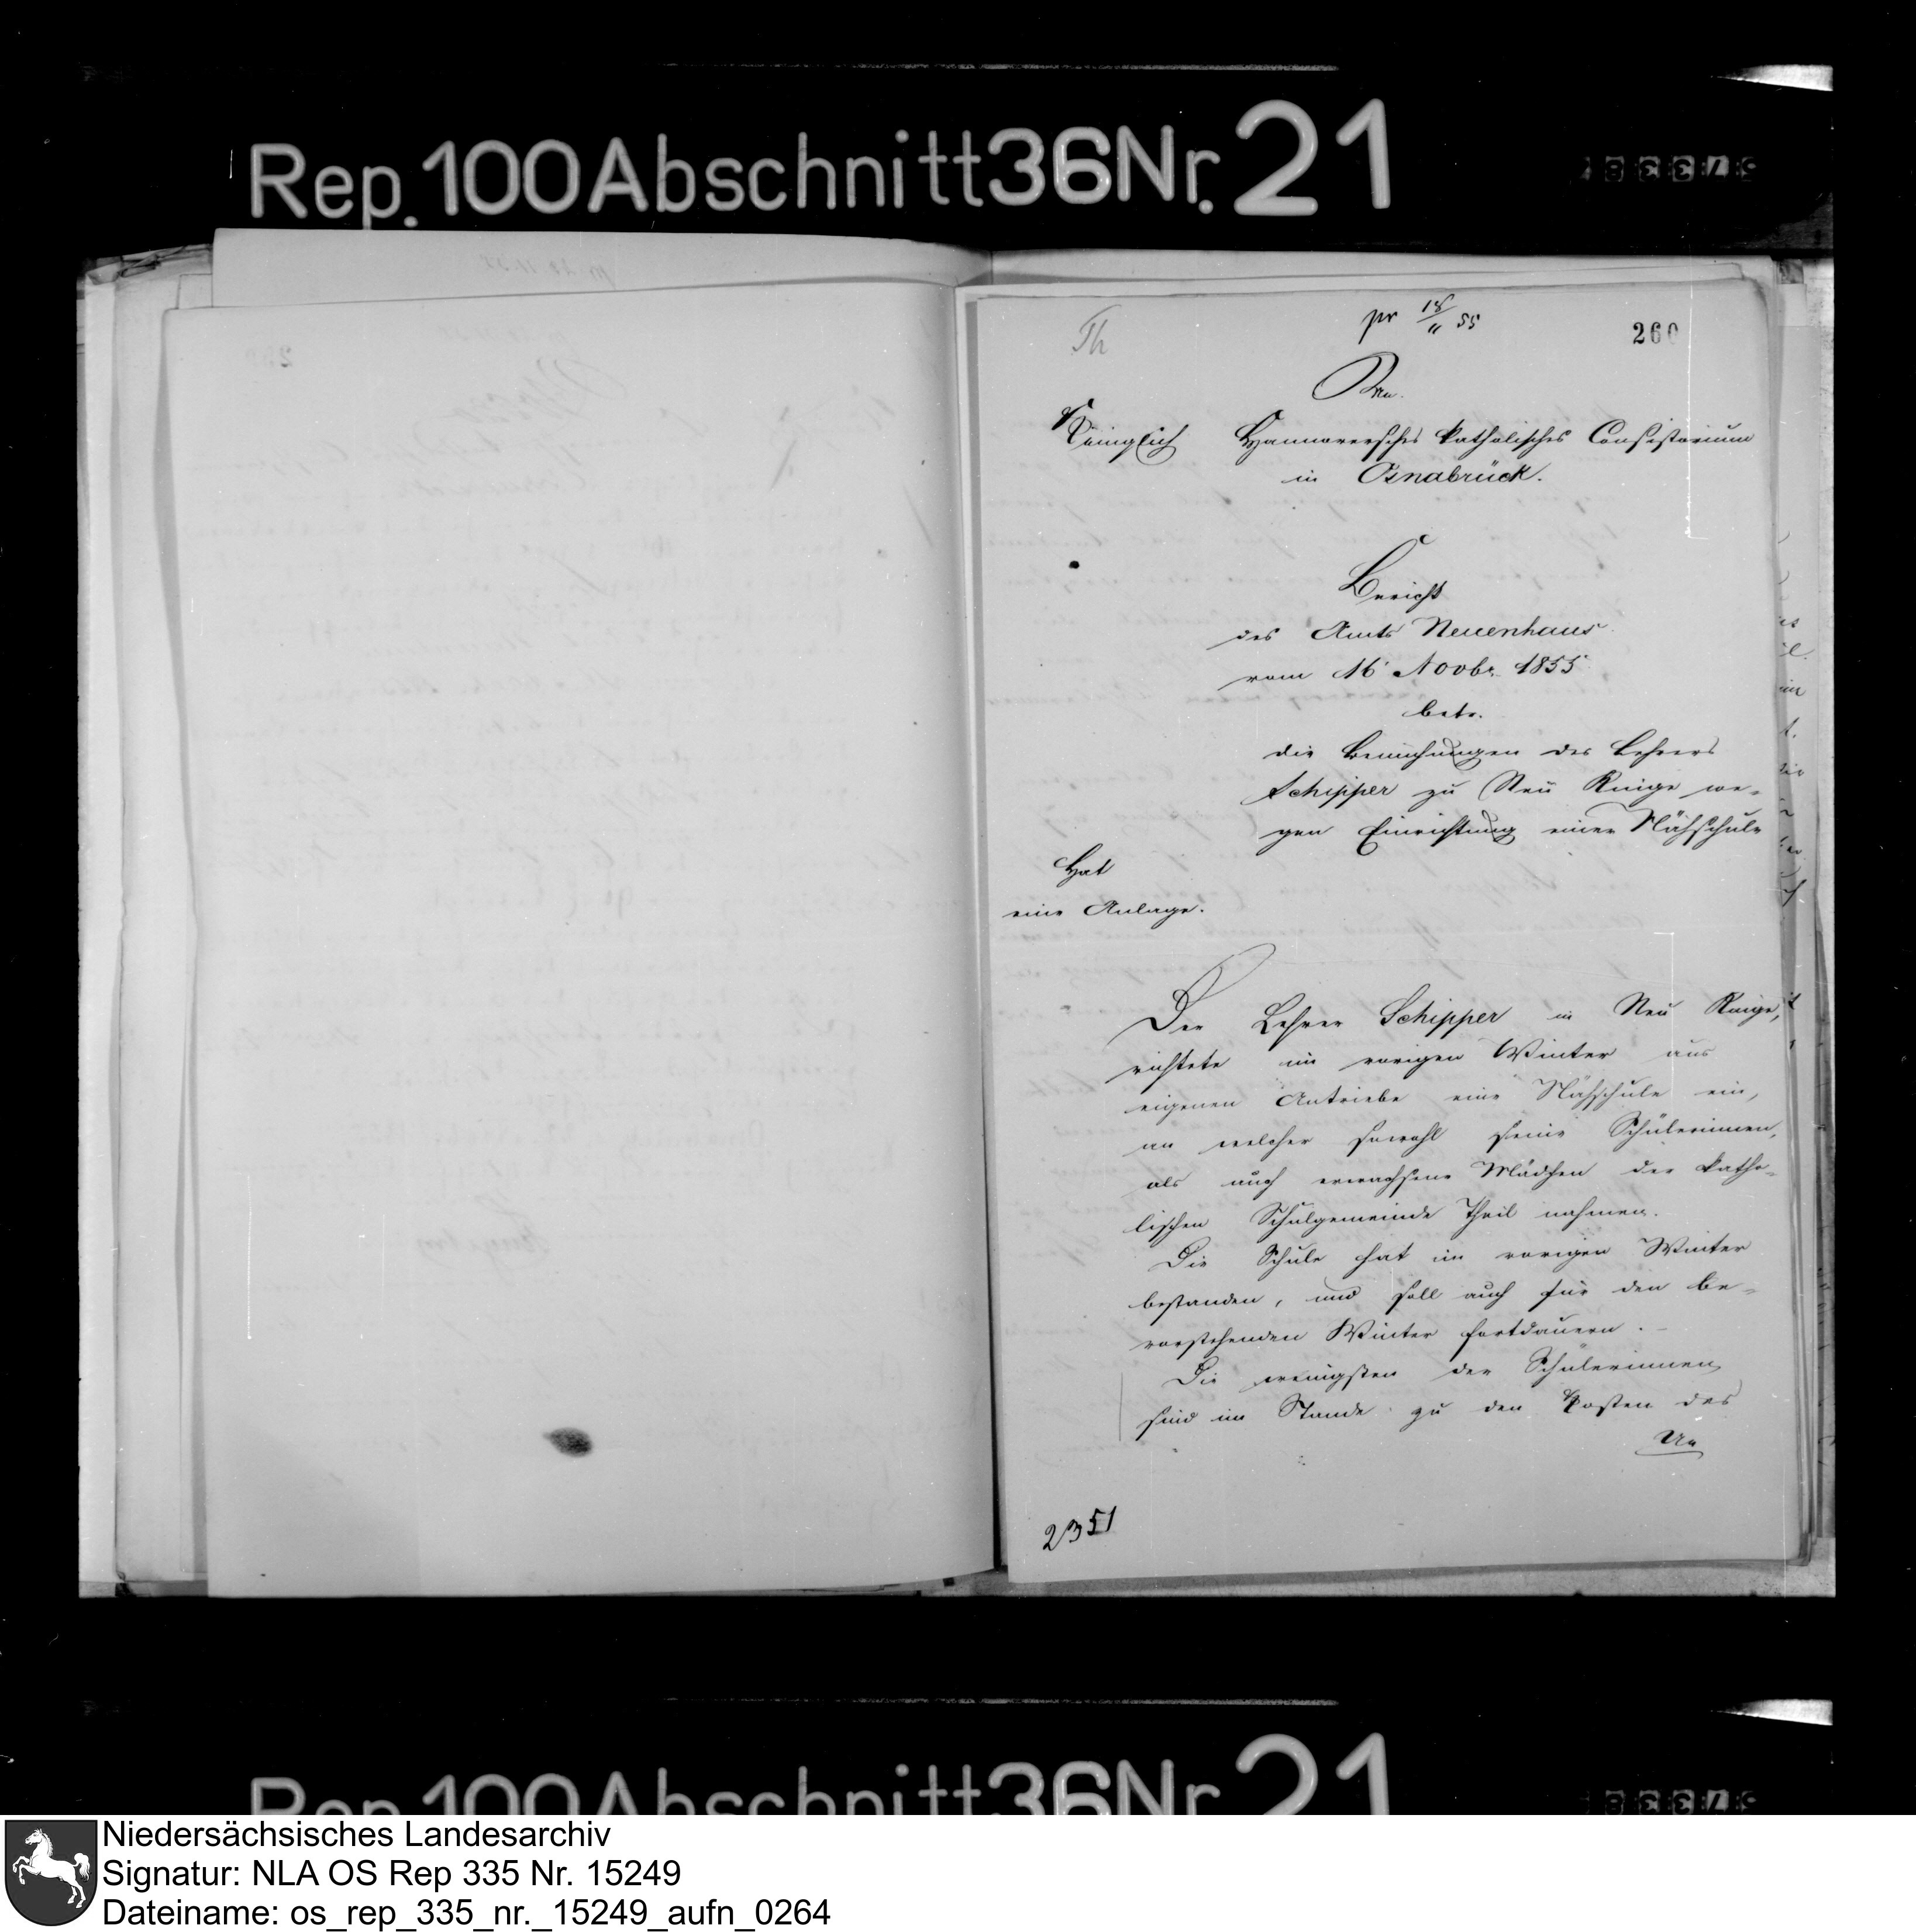 Rep. 100 Abschnitt 36 Nr. 21
Th
pr 18/11 55
260
An
Königlich Hannoversches katholisches Consistorium
in Osnabrück.
Bericht
des Amts Neuenhaus
vom 16 Novbr. 1855
betr.
die Bemühungen des Lehrers
Schipper zu Neu Ringe we-
gen Einrichtung einer Nähschule
Hat
eine Anlage.
Der Lehrer Schipper in Neu Ringe,
richtete im vorigen Winter aus
eigenen Antriebe eine Nähschule ein,
an welcher sowohl seine Schülerinnen,
als auch erwachsene Mädchen der katho-
lischen Schulgemeinde Theil nahmen.
Die Schule hat im vorigen Winter
bestanden, und soll auch für den be-
vorstehenden Winter fortdauern. -
Die wenigsten der Schülerinnen
sind im Stande zu den Kosten des
Un
2351
Rep. 100 Abschnitt 36 Nr. 21
Niedersächsisches Landesarchiv
Signatur: NLA OS Rep 335 Nr. 15249
Dateiname: os_rep_335_nr._15249_aufn_0264